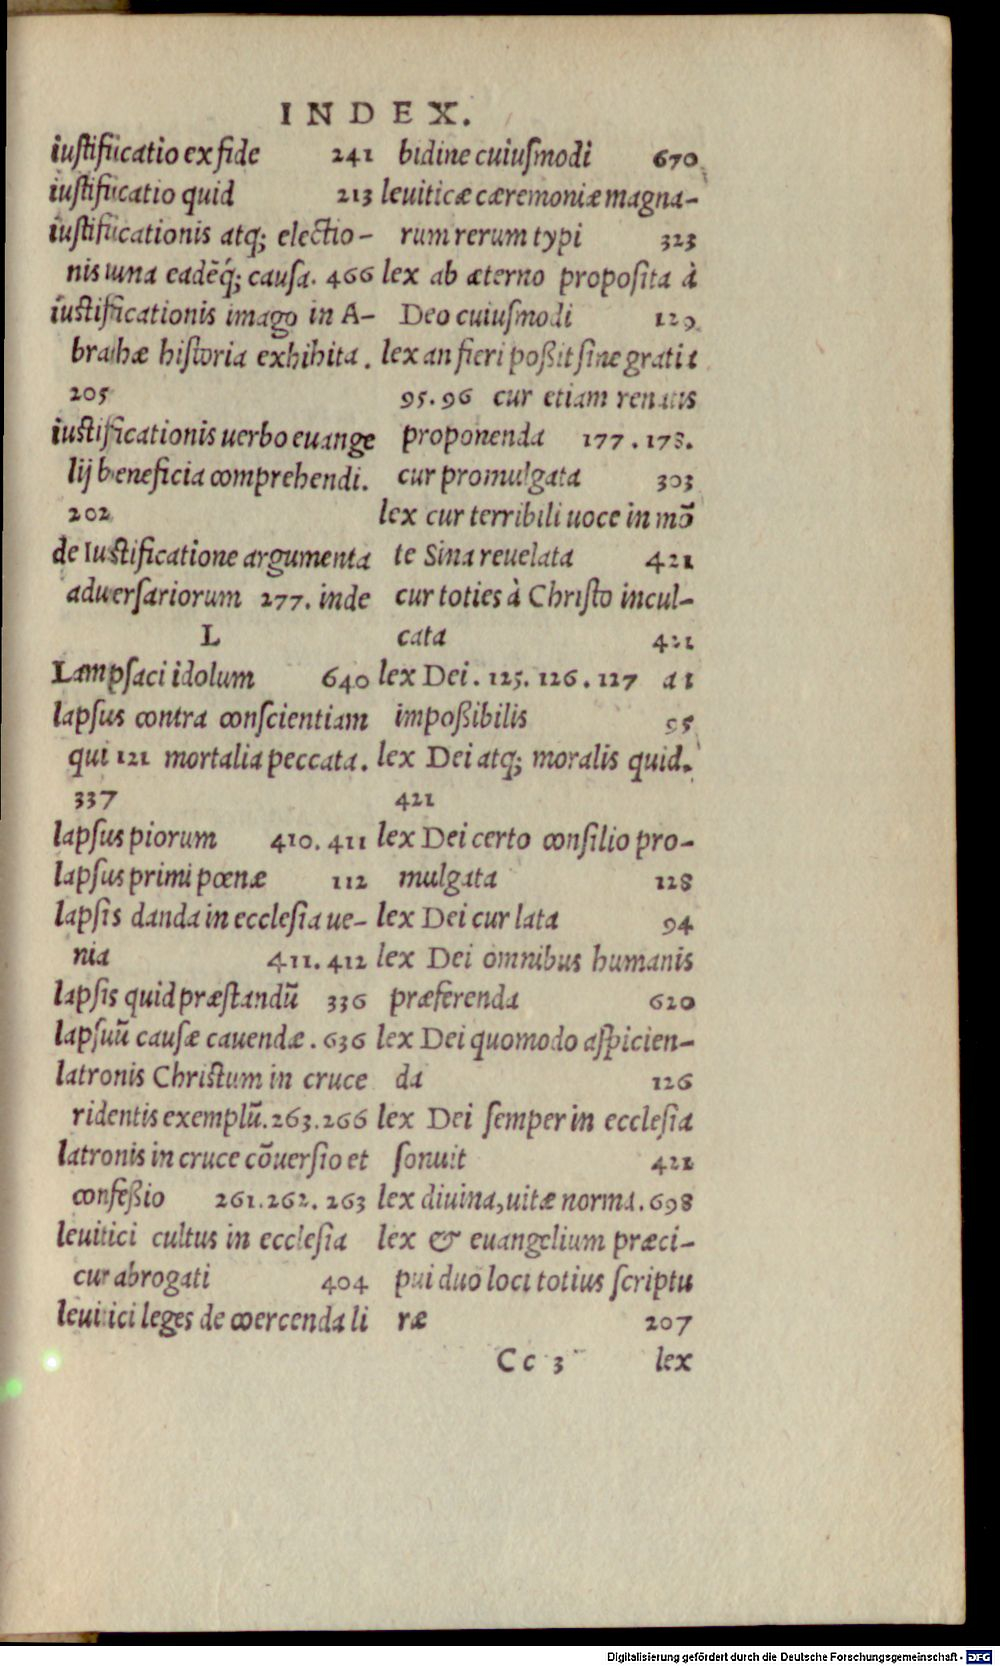 INDEX.
iustificatio ex fide 241
iustificatio quid 213
iustificationis atq; electio-
nis una eadẽq́; causa. 466
iustificationis imago in A-
brahæ historia exhibita.
205
iustificationis uerbo euange
lij beneficia comprehendi.
202
de Iustificatione argumenta
aduersariorum 277. inde
L
Lampsaci idolum 640
lapsus contra conscientiam
qui 121 mortalia peccata.
337
lapsus piorum 410. 411
lapsus primi pœnæ 112
lapsis danda in ecclesia ue-
nia 411. 412
lapsis quid præstandũ 336
lapsuũ causæ cauendæ. 636
latronis Christum in cruce
ridentis exemplũ. 263. 266
latronis in cruce cõuersio et
confeßio 261. 262. 263
leuitici cultus in ecclesia
cur abrogati 404
leuitici leges de coercenda li
bidine cuiusmodi 670
leuiticæ cæremoniæ magna-
rum rerum typi 323
lex ab æterno proposita à
Deo cuiusmodi 129
lex an fieri poßit sine gratia
95. 96 cur etiam renatis
proponenda 177. 178.
cur promulgata 303
lex cur terribili uoce in mõ
te Sina reuelata 421
cur toties à Christo incul-
cata 421
lex Dei. 125. 126. 127 an
impoßibilis 95
lex Dei atq; moralis quid.
421
lex Dei certo consilio pro-
mulgata 128
lex Dei cur lata 94
lex Dei omnibus humanis
præferenda 620
lex Dei quomodo aspicien-
da 126
lex Dei semper in ecclesia
sonuit 421
lex diuina, uitæ norma. 698
lex & euangelium præci-
pui duo loci totius scriptu
ræ 207
Cc 3 lex
Digitalisierung gefördert durch die Deutsche Forschungsgemeinschaft - DFG